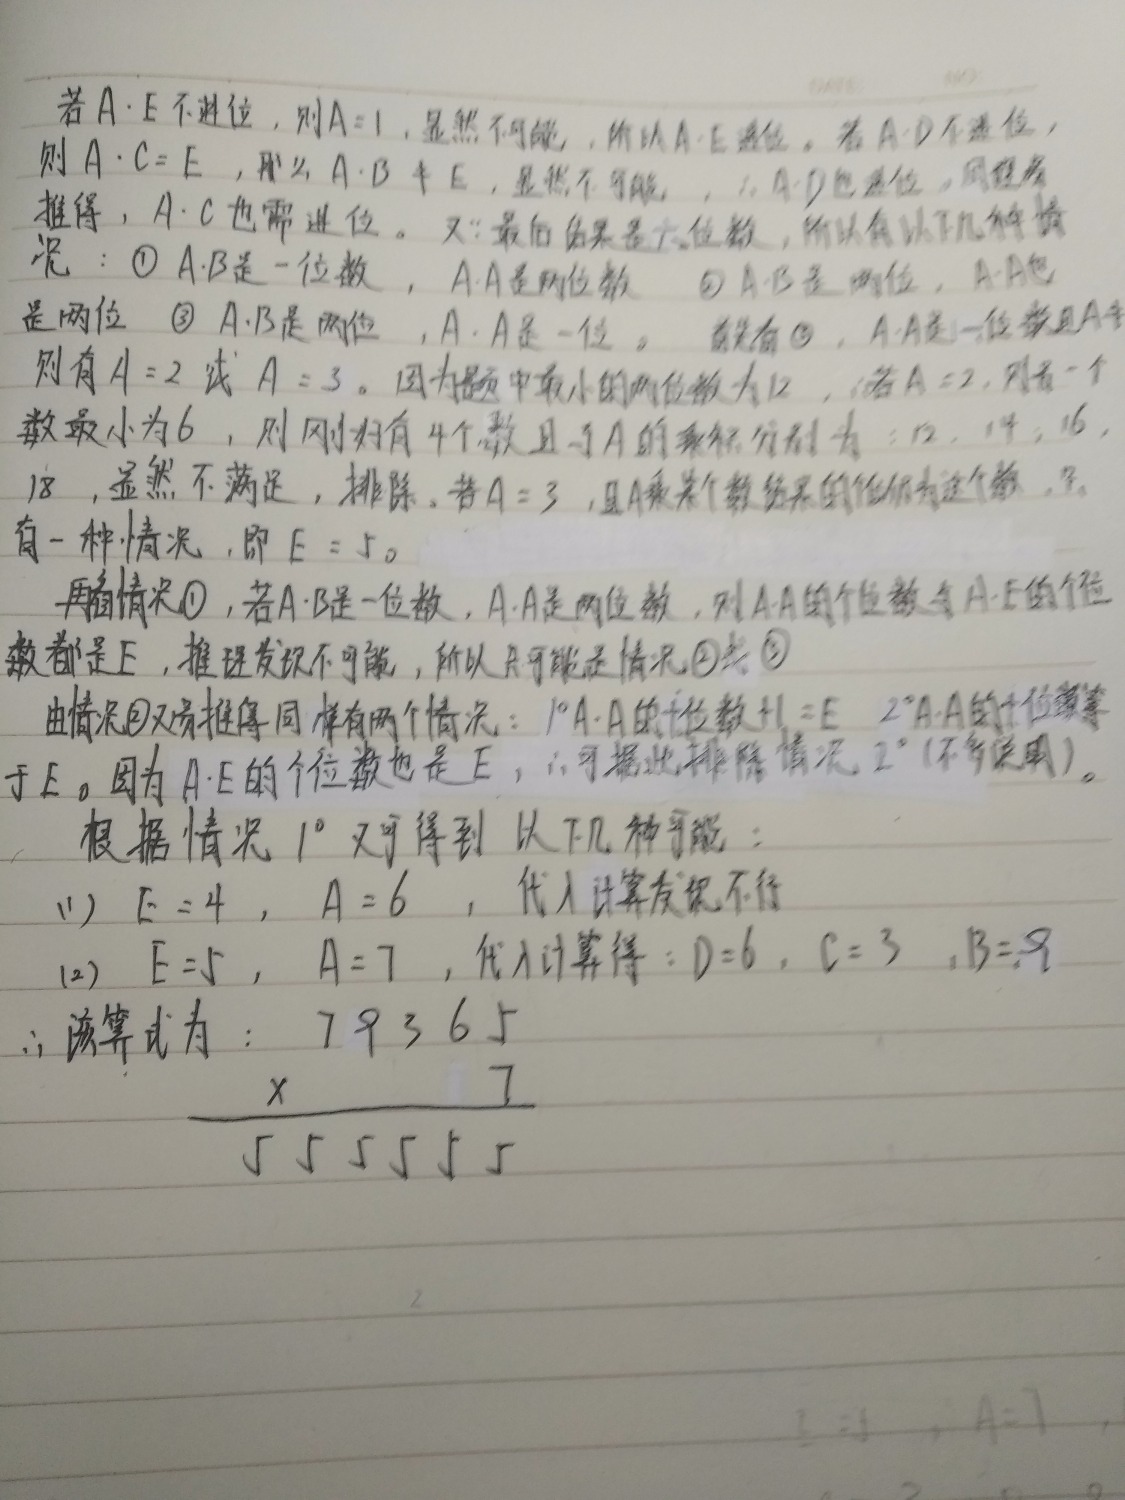 若A·E不进位，则A=1，显然不可能，所以A·E进位。若A·D不进位，
则A·C=E，那么A·B≠E，显然不可能，∴A·D也进位，同理
推得，A·C也需进位。又∵最后结果是六位数，所以有以下几种情
况：①A·B是一位数，A·A是两位数 ②A·B是两位，A·A也
是两位 ③A·B是两位，A·A是一位。 首先看③，A·A是一位数且A≠
则有A=2或A=3。因为题中最小的两位数为12，∴若A=2，则有一个
数最小为6，则刚好有4个数且与A的乘积分别为：12，14，16，
18，显然不满足，排除。若A=3，且A乘某个数结果的个位仍为这个数，只
有一种情况，即E=5。
再看情况①，若A·B是一位数，A·A是两位数，则A·A的个位数与A·E的个位
数都是E，推理发现不可能，所以只可能是情况②或③
由情况②又可推得同样有两个情况：1°A·A的十位数+1=E 2°A·A的十位数等
于E。因为A·E的个位数也是E，∴可据此排除情况2°（不多说明）。
根据情况1°又可得到以下几种可能：
(1) E=4，A=6，代入计算发现不行
(2) E=5，A=7，代入计算得：D=6，C=3，B=9
∴该算式为：79365
× 7
555555
2
E=5，A=7，